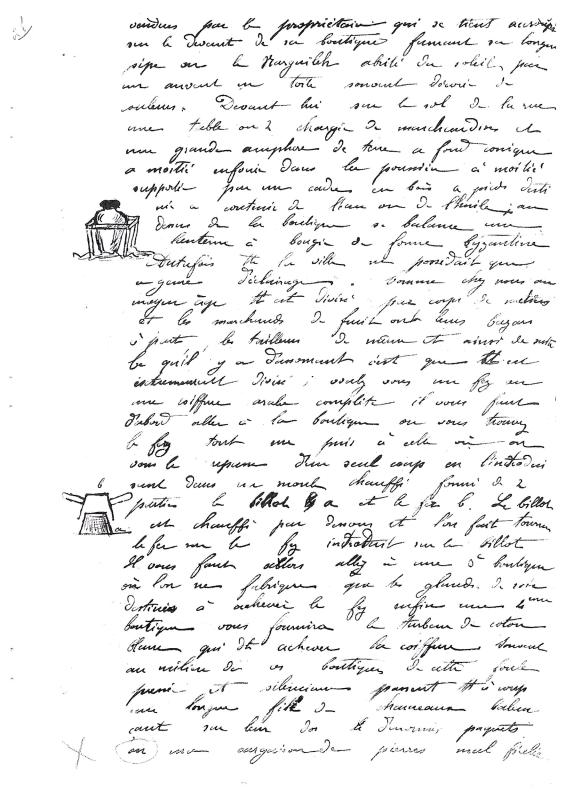 vendues par le propriétaire qui se tient accroupi
sur le devant de sa boutique fumant sa longue
pipe ou le Narguileh abrité du soleil par
un auvent en toile souvent décoré de
couleurs. Devant lui sur le sol de la rue
une table ou 2 chargée de marchandises et
une grande amphore de terre a fond conique
a moitié enfouie dans la poussière à moitié
supportée par un cadre en bois a pieds desti
née a contenir de l'eau ou de l'huile; au
dessus de la boutique se balance une
lanterne à bougie de forme byzantine
Autrefois tte la ville ne possédait que
ce genre d'éclairage. Comme chez nous au
moyen âge tt est divisé par corps de métiers
et les marchands de fruit ont leurs bazars
à part, les tailleurs de même et ainsi de suite
Ce qu'il y a d'amusant c'est que tt est
extrêmement divisé; voulez vous un fez ou
une coiffure arabe complète il vous faut
d'abord aller à la boutique ou vous trouvez
le fez tout uni puis à celle où on
vous le repasse d'un seul coup en l'introdui
sant dans un moule chauffé formé de 2
parties le billot a et le fer b. Le billot
est chauffé par dessous et l'on fait tourner
le fer sur le fez introduit sur le billot
Il vous faut alors allez à une 3e boutique
où l'on ne fabrique que les glands de soie
destinés à achever le fez enfin une 4eme
boutique vous fournira le turban de coton
blanc qui dt achever la coiffure Souvent
au milieu de ces boutiques de cette foule
pressée et silencieuse passent tt à coup
une longue file de chameaux balan
çant sur leur dos d'énormes paquets
ou une cargaison de pierres mal ficelée
b
a